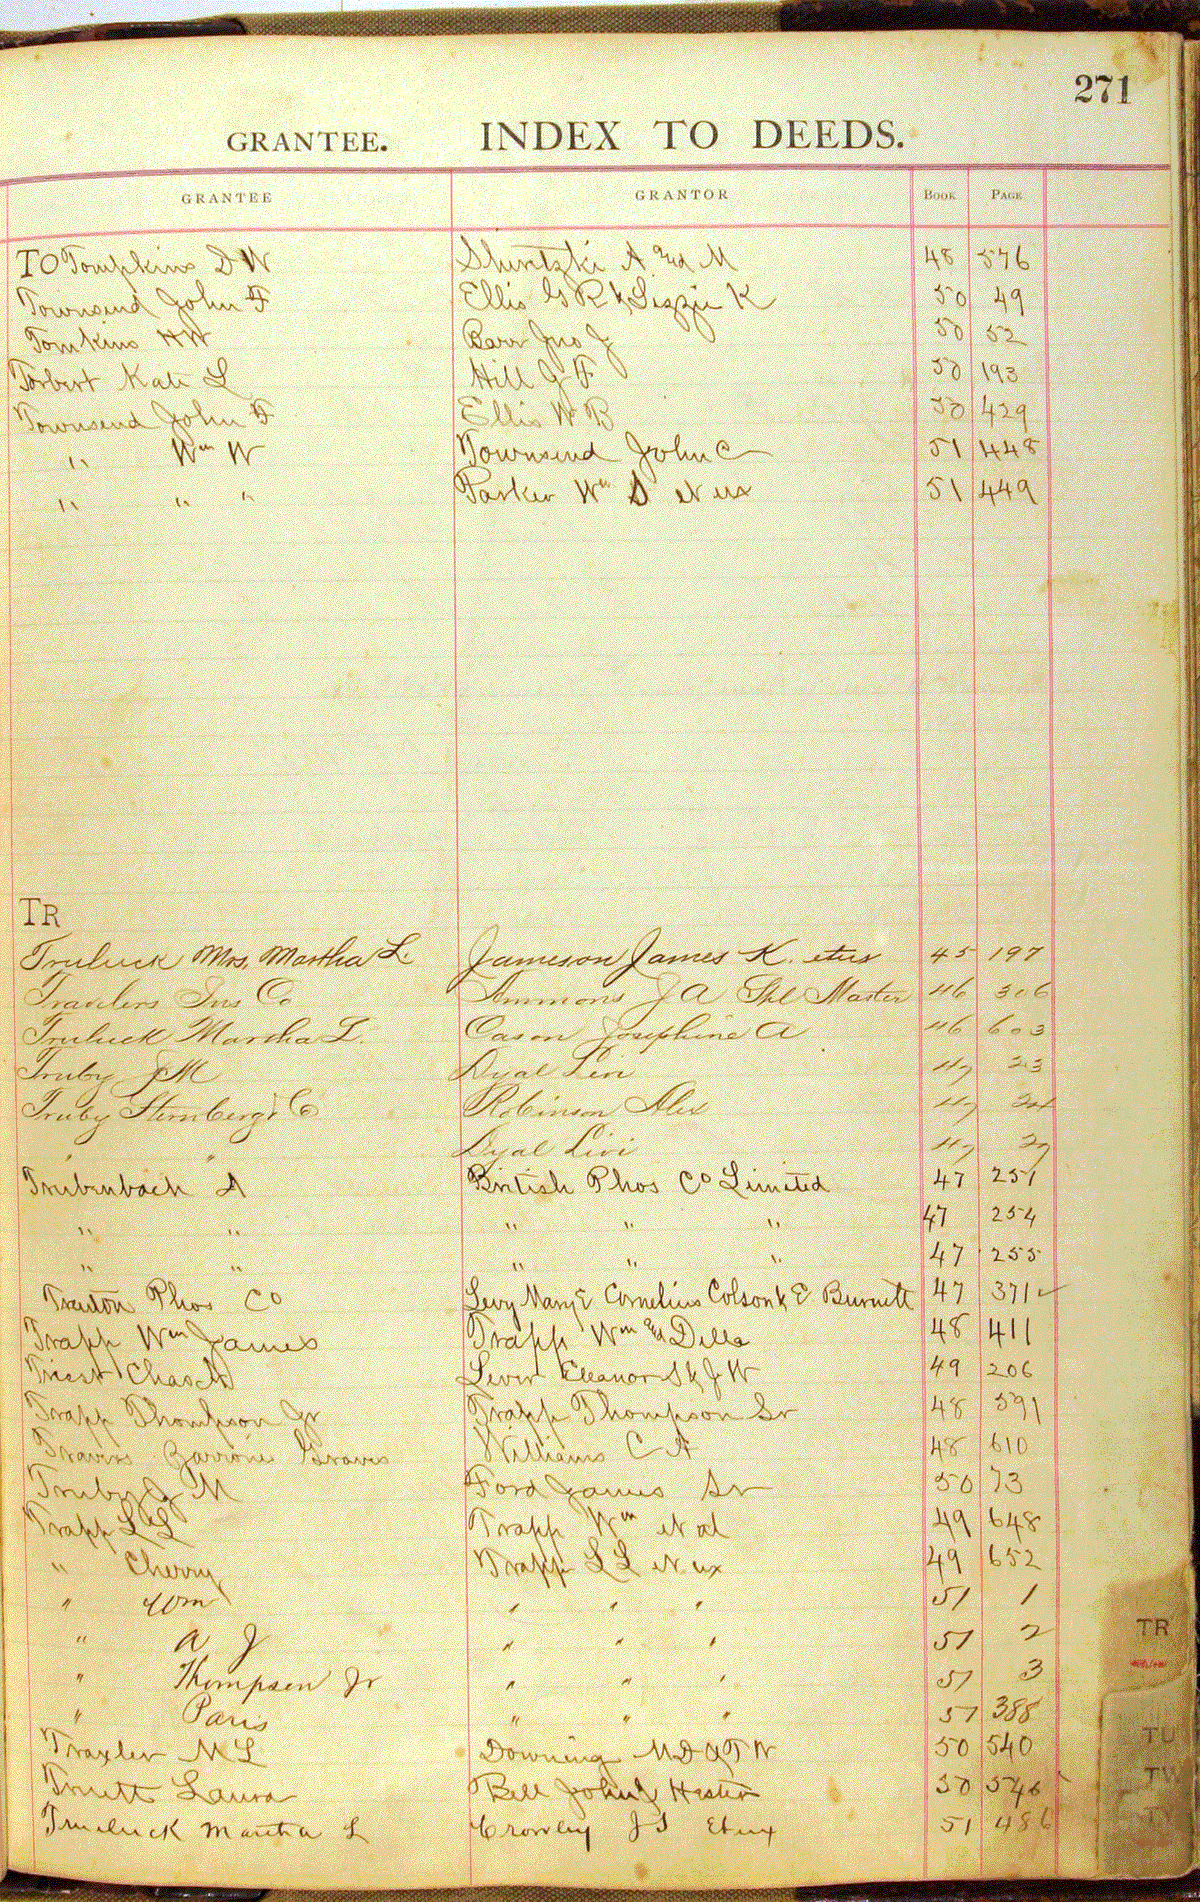 271
GRANTEE. INDEX TO DEEDS.
GRANTEE GRANTOR BOOK PAGE
TO Tompkins D W Shuntzki A and M 48 576
Townsend John F Ellis G R & Lizzie K 50 49
Tomkins H W Barr Jno J 50 52
Torbert Kate L Hill G F 50 193
Townsend John F Ellis W B 50 429
" Wm W Townsend John C 51 448
" " " Parker Wm S et ux 51 449
TR
Truluck Mrs. Martha L. Jameson James K. et ux 45 197
Travelers Ins Co Ammons J A Spl Master 46 306
Truluck Martha L. Cason Josephine A 46 603
Truby J M Dyal Levi 47 23
Truby Sternberg & Co Robinson Alex 47 24
" " Dyal Livi 47 27
Trubenbach A British Phos Co Limited 47 251
" " " " " 47 254
" " " " " 47 255
Phos Co Levy Mary E Cornelius Colson & E Burnett 47 371 ✓
Trapp Wm James Trapp Wm and Della 48 411
Triest Chas Lever Eleanor S & J W 49 206
Trapp Thompson Jr Trapp Thompson Sr 48 591
Travers Graves Williams C A 48 610
Truby J M Ford James Sr 50 73
Trapp L L Trapp Wm et al 49 648
" Cherry Trapp L L et ux 49 652
" Wm " " " 51 1
" A J " " " 51 2
" Thompson Jr " " " 51 3
" Paris " " " 51 388
Traxler M L Downing 50 540
Truett Laura Bell John & Hester 50 546
Truluck Martha L Crowley J S et ux 51 486
TR
TU
TW
TY